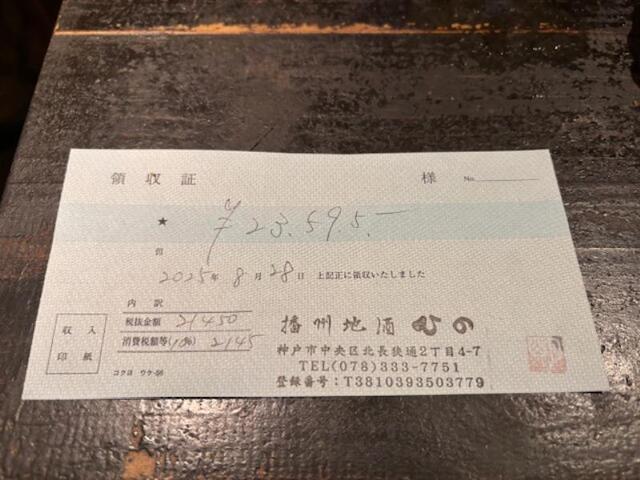 領収証 様 No.
★ ¥23,595.-
但
2025年 8月 28日 上記正に領収いたしました
内訳
税抜金額 21450
消費税額等(10%) 2145
収入
印紙
コクヨ ウケ-56
播州地酒 ひの
神戸市中央区北長狭通2丁目4-7
TEL(078)333-7751
登録番号:T3810393503779